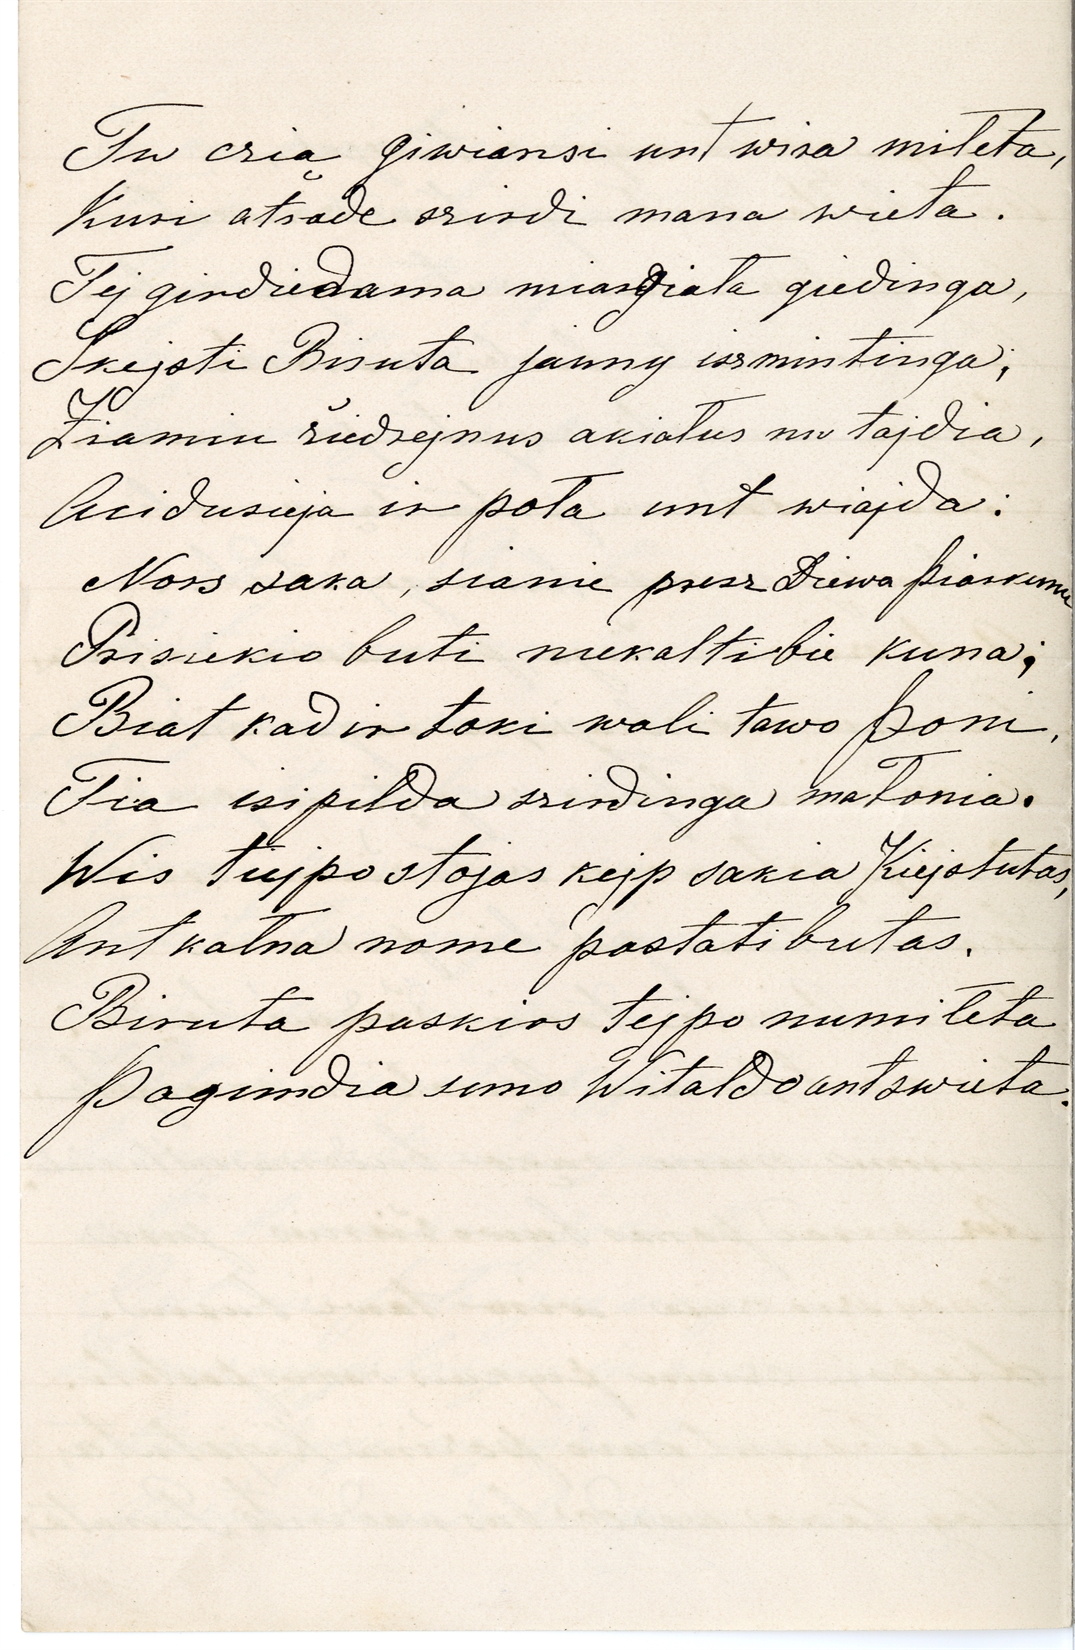 Tu czią giwiansi unt wisa mileta,
Kuri atrade szirdi mana wieta.
Tej girdiedama miargiata giedinga,
Skejsti Biruta jauny iszmintinga;
Ziamiu žiedrejnus akiatus nu tajdia,
Acidusieja ir pota unt wiajda:
Nors saka, sianie presz Diewa Piarkunu
Prisiekio buti niekaltibie kuna;
Biat kad ir toki wali tawo Poni,
Tia isipilda szirdinga matonia.
Wis tiejpo stojas kejp sakia Kiejstutas,
Ant katna nome pastati butas.
Biruta paskios tejpo numileta
Pagimdia suno Witaldo ant swieta.